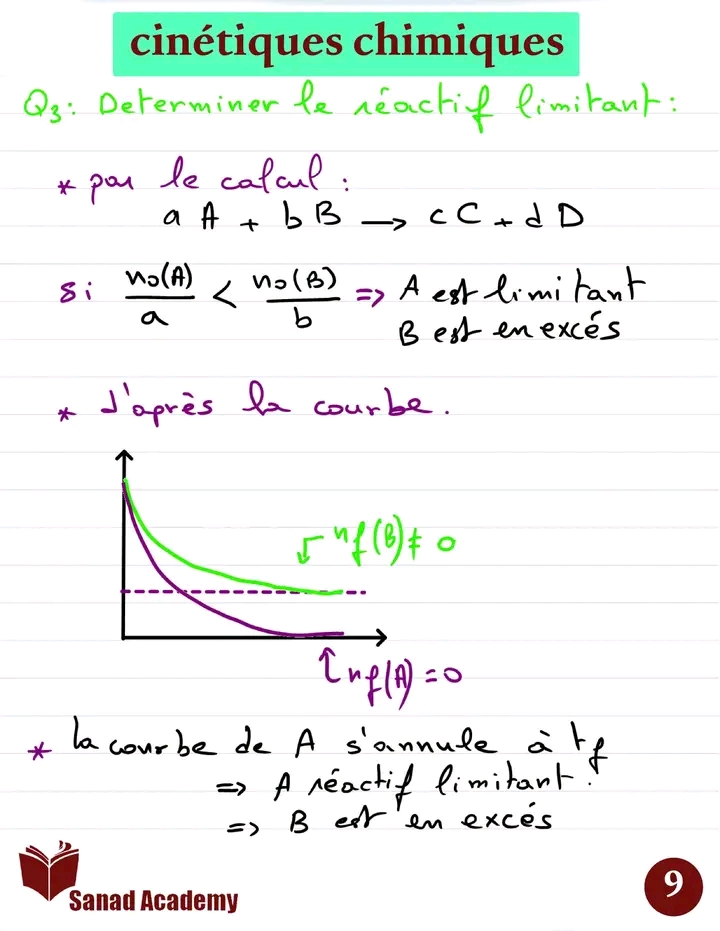 cinétiques chimiques
Q3: Determiner le réactif limitant:
* par le calcul:
a A + b B → cC + d D
si n0(A)/a < n0(B)/b => A est limitant
B est en excés
* d'après la courbe.
nf(B) ≠ 0
nf(A) = 0
* la courbe de A s'annule à tf
=> A réactif limitant.
=> B est en excés
Sanad Academy
9